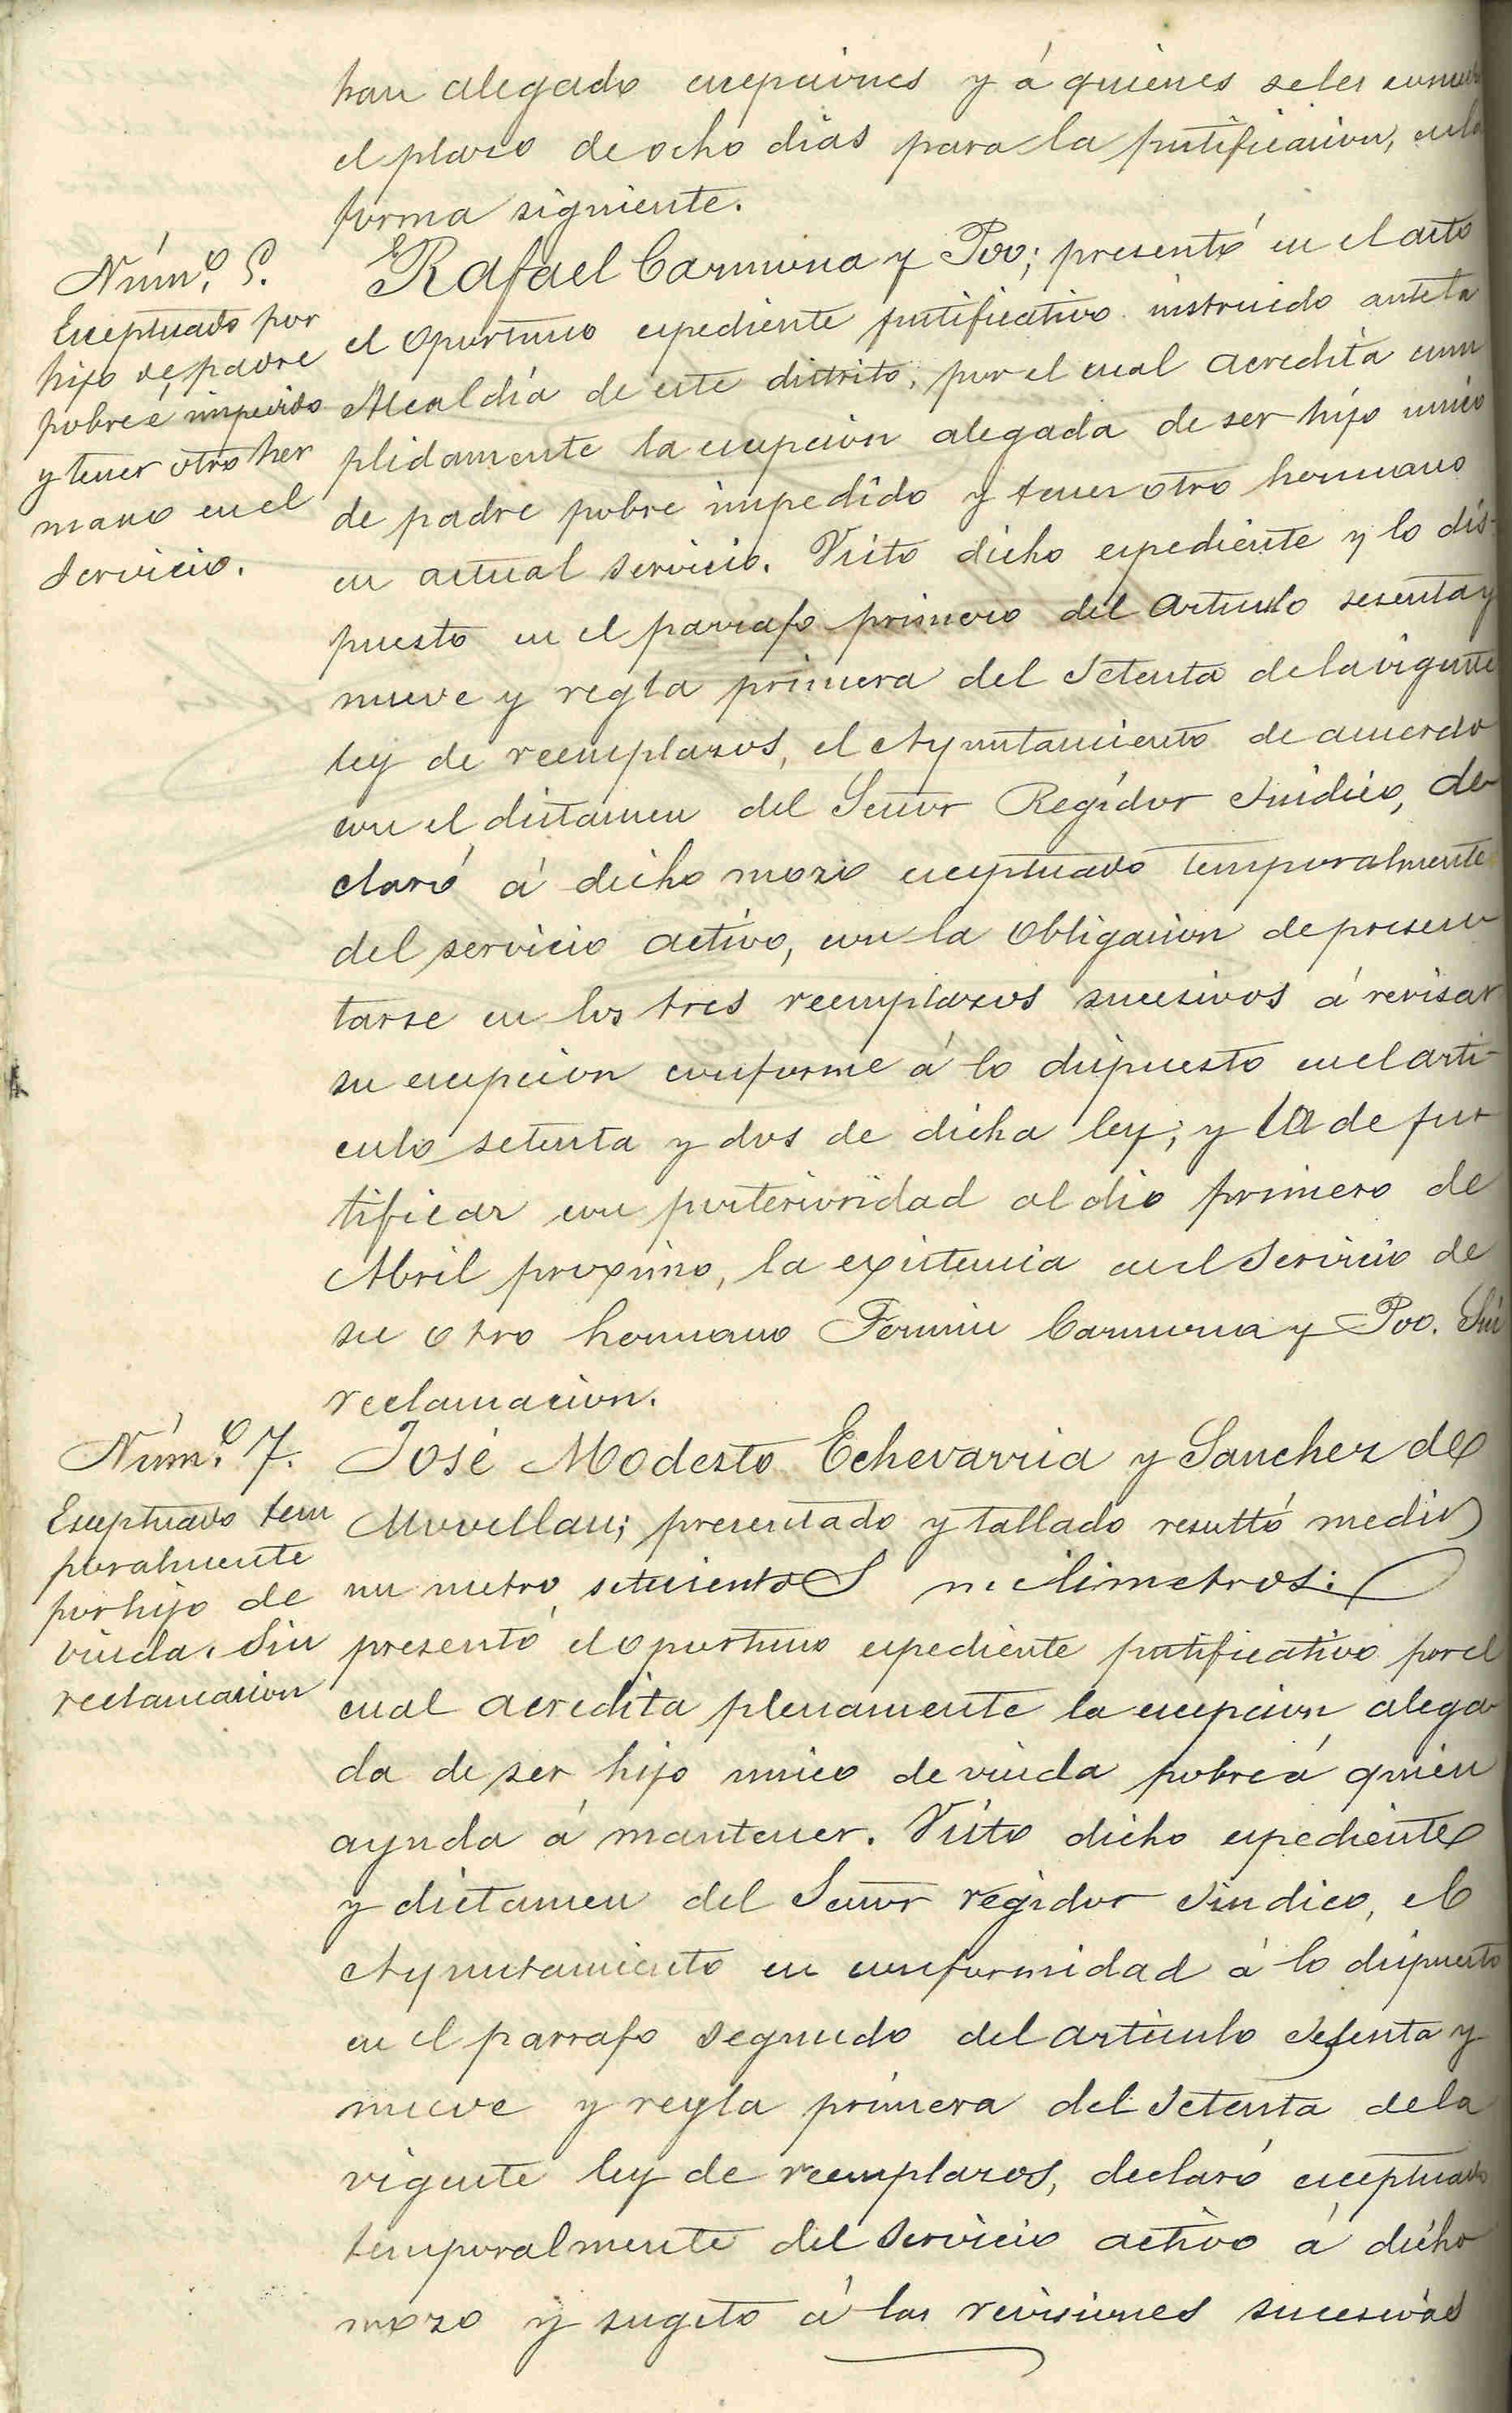 han alegado excepciones y á quienes se les
el plazo de ocho dias para la justificacion, en la
forma siguiente.
Núm.º 5.
Exceptuado por
hijo de padre
pobre é impedido
y tener otro her
mano en el
Servicio.
Rafael Carmona y Poo; presentó en el acto
el oportuno espediente justificativo instruido ante la
Alcaldía de este distrito, por el cual acredita cum
plidamente la escepcion alegada de ser hijo unico
de padre pobre impedido y tener otro hermano
en actual servicio. Visto dicho espediente y lo dis-
puesto en el parrafo primero del articulo sesenta y
nueve y regla primera del setenta de la vigente
ley de reemplazos, el Ayuntamiento de acuerdo
con el dictamen del Señor Regidor Sindico, de
claró á dicho mozo exceptuado temporalmente
del servicio activo, con la obligacion de presen
tarse en los tres reemplazos sucesivos á revisar
su escepcion conforme á lo dispuesto en el arti-
culo setenta y dos de dicha ley; y la de jus
tificar con posterioridad al dia primero de
Abril proximo, la existencia en el Servicio de
su otro hermano Fermin Carmona y Poo. Sin
reclamacion.
Núm.º 7.
Exceptuado tem
poralmente
por hijo de
viuda. Sin
reclamacion
José Modesto Echevarria y Sanchez de
Movellan; presentado y tallado resultó medir
un metro setecientos milimetros:
presentó el oportuno espediente justificativo por el
cual acredita plenamente la escepcion alega
da de ser hijo unico de viuda pobre á quien
ayuda á mantener. Visto dicho espediente
y dictamen del Señor regidor Sindico, el
Ayuntamiento en conformidad á lo dispuesto
en el parrafo segundo del articulo sesenta y
nueve y regla primera del Setenta de la
vigente ley de reemplazos, declaró exceptuado
temporalmente del Servicio activo á dicho
mozo y sugeto á las revisiones sucesivas